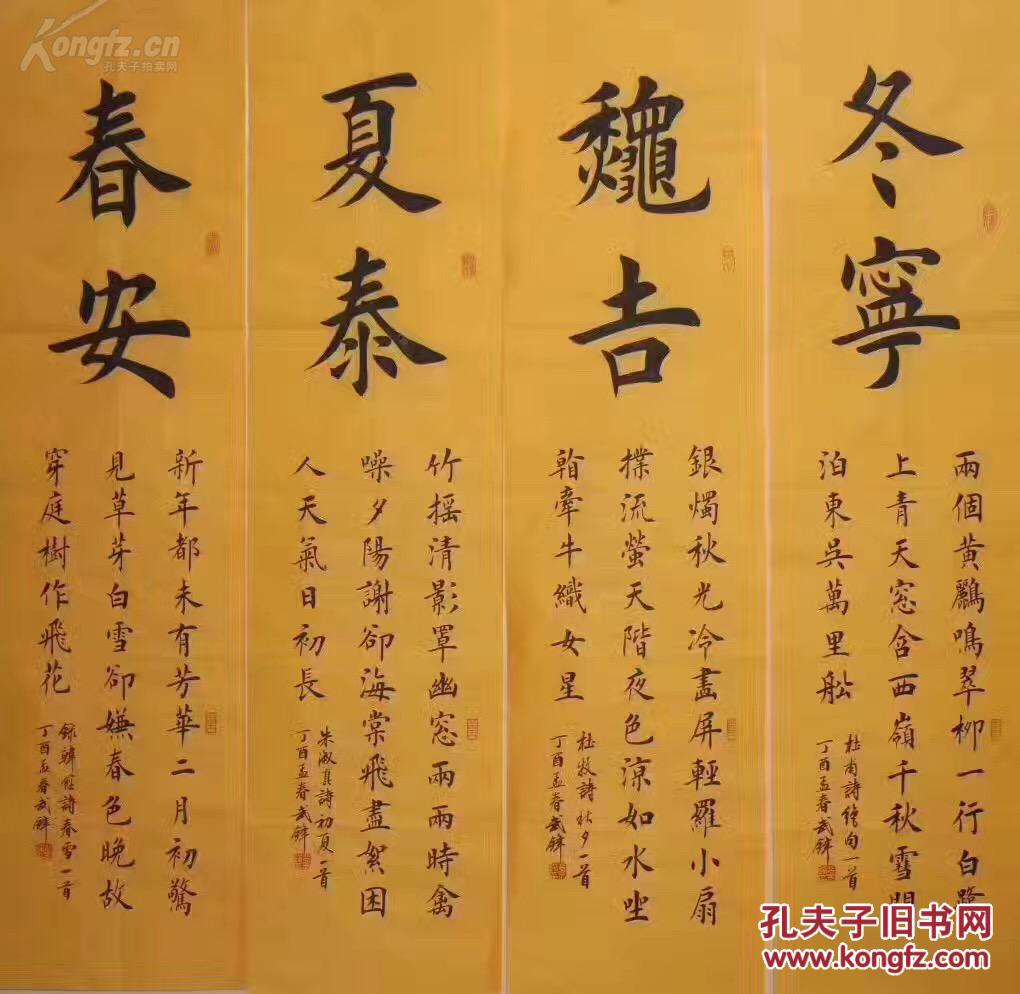 Kongfz.cn
孔夫子拍卖网
春安
新年都未有芳華二月初驚
見草芽白雪卻嫌春色晚故
穿庭樹作飛花
錄韓愈詩春雪一首
丁酉孟春武鋒
夏泰
竹摇清影罩幽窓兩兩時禽
噪夕陽謝卻海棠飛盡絮困
人天氣日初長
朱淑真詩初夏一首
丁酉孟春武鋒
龝吉
銀燭秋光冷畫屏輕羅小扇
撲流螢天階夜色涼如水坐
看牽牛織女星
杜牧詩秋夕一首
丁酉孟春武鋒
冬寧
兩個黄鸝鳴翠柳一行白鷺
上青天窓含西嶺千秋雪門
泊東吳萬里船
杜甫詩絕句一首
丁酉孟春武鋒
孔夫子旧书网
www.kongfz.com